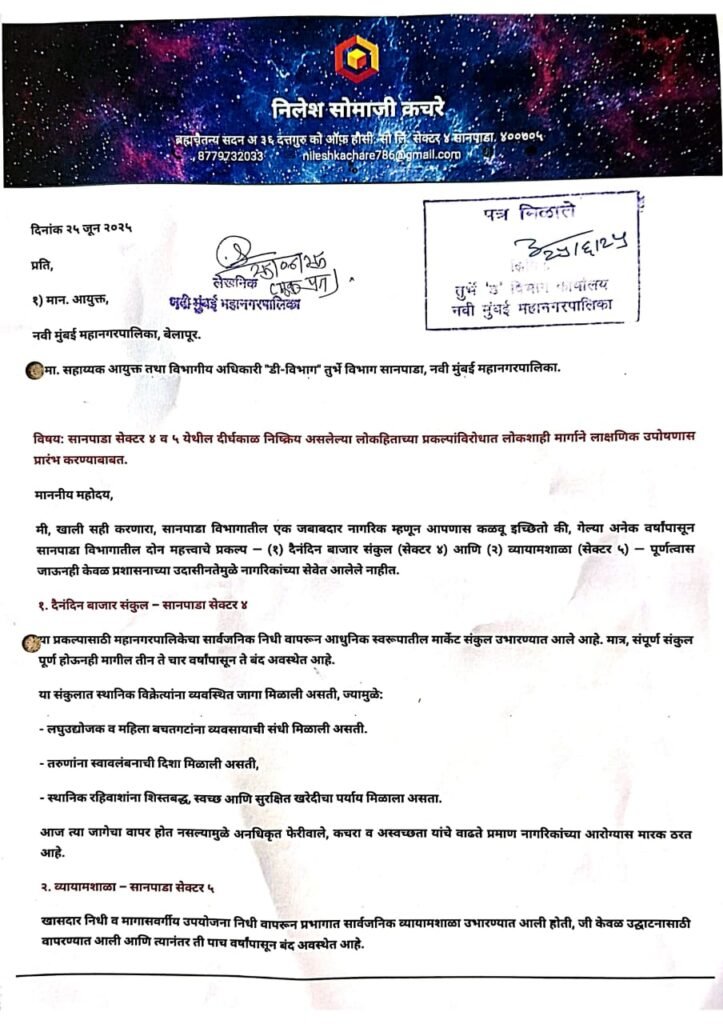 निलेश सोमाजी कचरे
ब्रह्मचैतन्य सदन अ ३६ दत्तगुरु को ऑफ़ हौसी. सो लि. सेक्टर ४ सानपाडा. ४००७०५
8779732033 nileshkachare786@gmail.com
दिनांक २५ जून २०२५
पत्र मिळाले
२५/६/२५
तुर्भे विभाग कार्यालय
नवी मुंबई महानगरपालिका
प्रति,
लेखनिक
नवी मुंबई महानगरपालिका
१) मान. आयुक्त,
नवी मुंबई महानगरपालिका, बेलापूर.
मा. सहाय्यक आयुक्त तथा विभागीय अधिकारी "डी-विभाग" तुर्भे विभाग सानपाडा, नवी मुंबई महानगरपालिका.
विषय: सानपाडा सेक्टर ४ व ५ येथील दीर्घकाळ निष्क्रिय असलेल्या लोकहिताच्या प्रकल्पांविरोधात लोकशाही मार्गाने लाक्षणिक उपोषणास
प्रारंभ करण्याबाबत.
माननीय महोदय,
मी, खाली सही करणारा, सानपाडा विभागातील एक जबाबदार नागरिक म्हणून आपणास कळवू इच्छितो की, गेल्या अनेक वर्षांपासून
सानपाडा विभागातील दोन महत्त्वाचे प्रकल्प – (१) दैनंदिन बाजार संकुल (सेक्टर ४) आणि (२) व्यायामशाळा (सेक्टर ५) – पूर्णत्वास
जाऊनही केवळ प्रशासनाच्या उदासीनतेमुळे नागरिकांच्या सेवेत आलेले नाहीत.
१. दैनंदिन बाजार संकुल – सानपाडा सेक्टर ४
या प्रकल्पासाठी महानगरपालिकेचा सार्वजनिक निधी वापरून आधुनिक स्वरूपातील मार्केट संकुल उभारण्यात आले आहे. मात्र, संपूर्ण संकुल
पूर्ण होऊनही मागील तीन ते चार वर्षांपासून ते बंद अवस्थेत आहे.
या संकुलात स्थानिक विक्रेत्यांना व्यवस्थित जागा मिळाली असती, ज्यामुळे:
- लघुउद्योजक व महिला बचतगटांना व्यवसायाची संधी मिळाली असती.
- तरुणांना स्वावलंबनाची दिशा मिळाली असती,
- स्थानिक रहिवाशांना शिस्तबद्ध, स्वच्छ आणि सुरक्षित खरेदीचा पर्याय मिळाला असता.
आज त्या जागेचा वापर होत नसल्यामुळे अनधिकृत फेरीवाले, कचरा व अस्वच्छता यांचे वाढते प्रमाण नागरिकांच्या आरोग्यास मारक ठरत
आहे.
२. व्यायामशाळा – सानपाडा सेक्टर ५
खासदार निधी व मागासवर्गीय उपयोजना निधी वापरून प्रभागात सार्वजनिक व्यायामशाळा उभारण्यात आली होती, जी केवळ उद्घाटनासाठी
वापरण्यात आली आणि त्यानंतर ती पाच वर्षांपासून बंद अवस्थेत आहे.